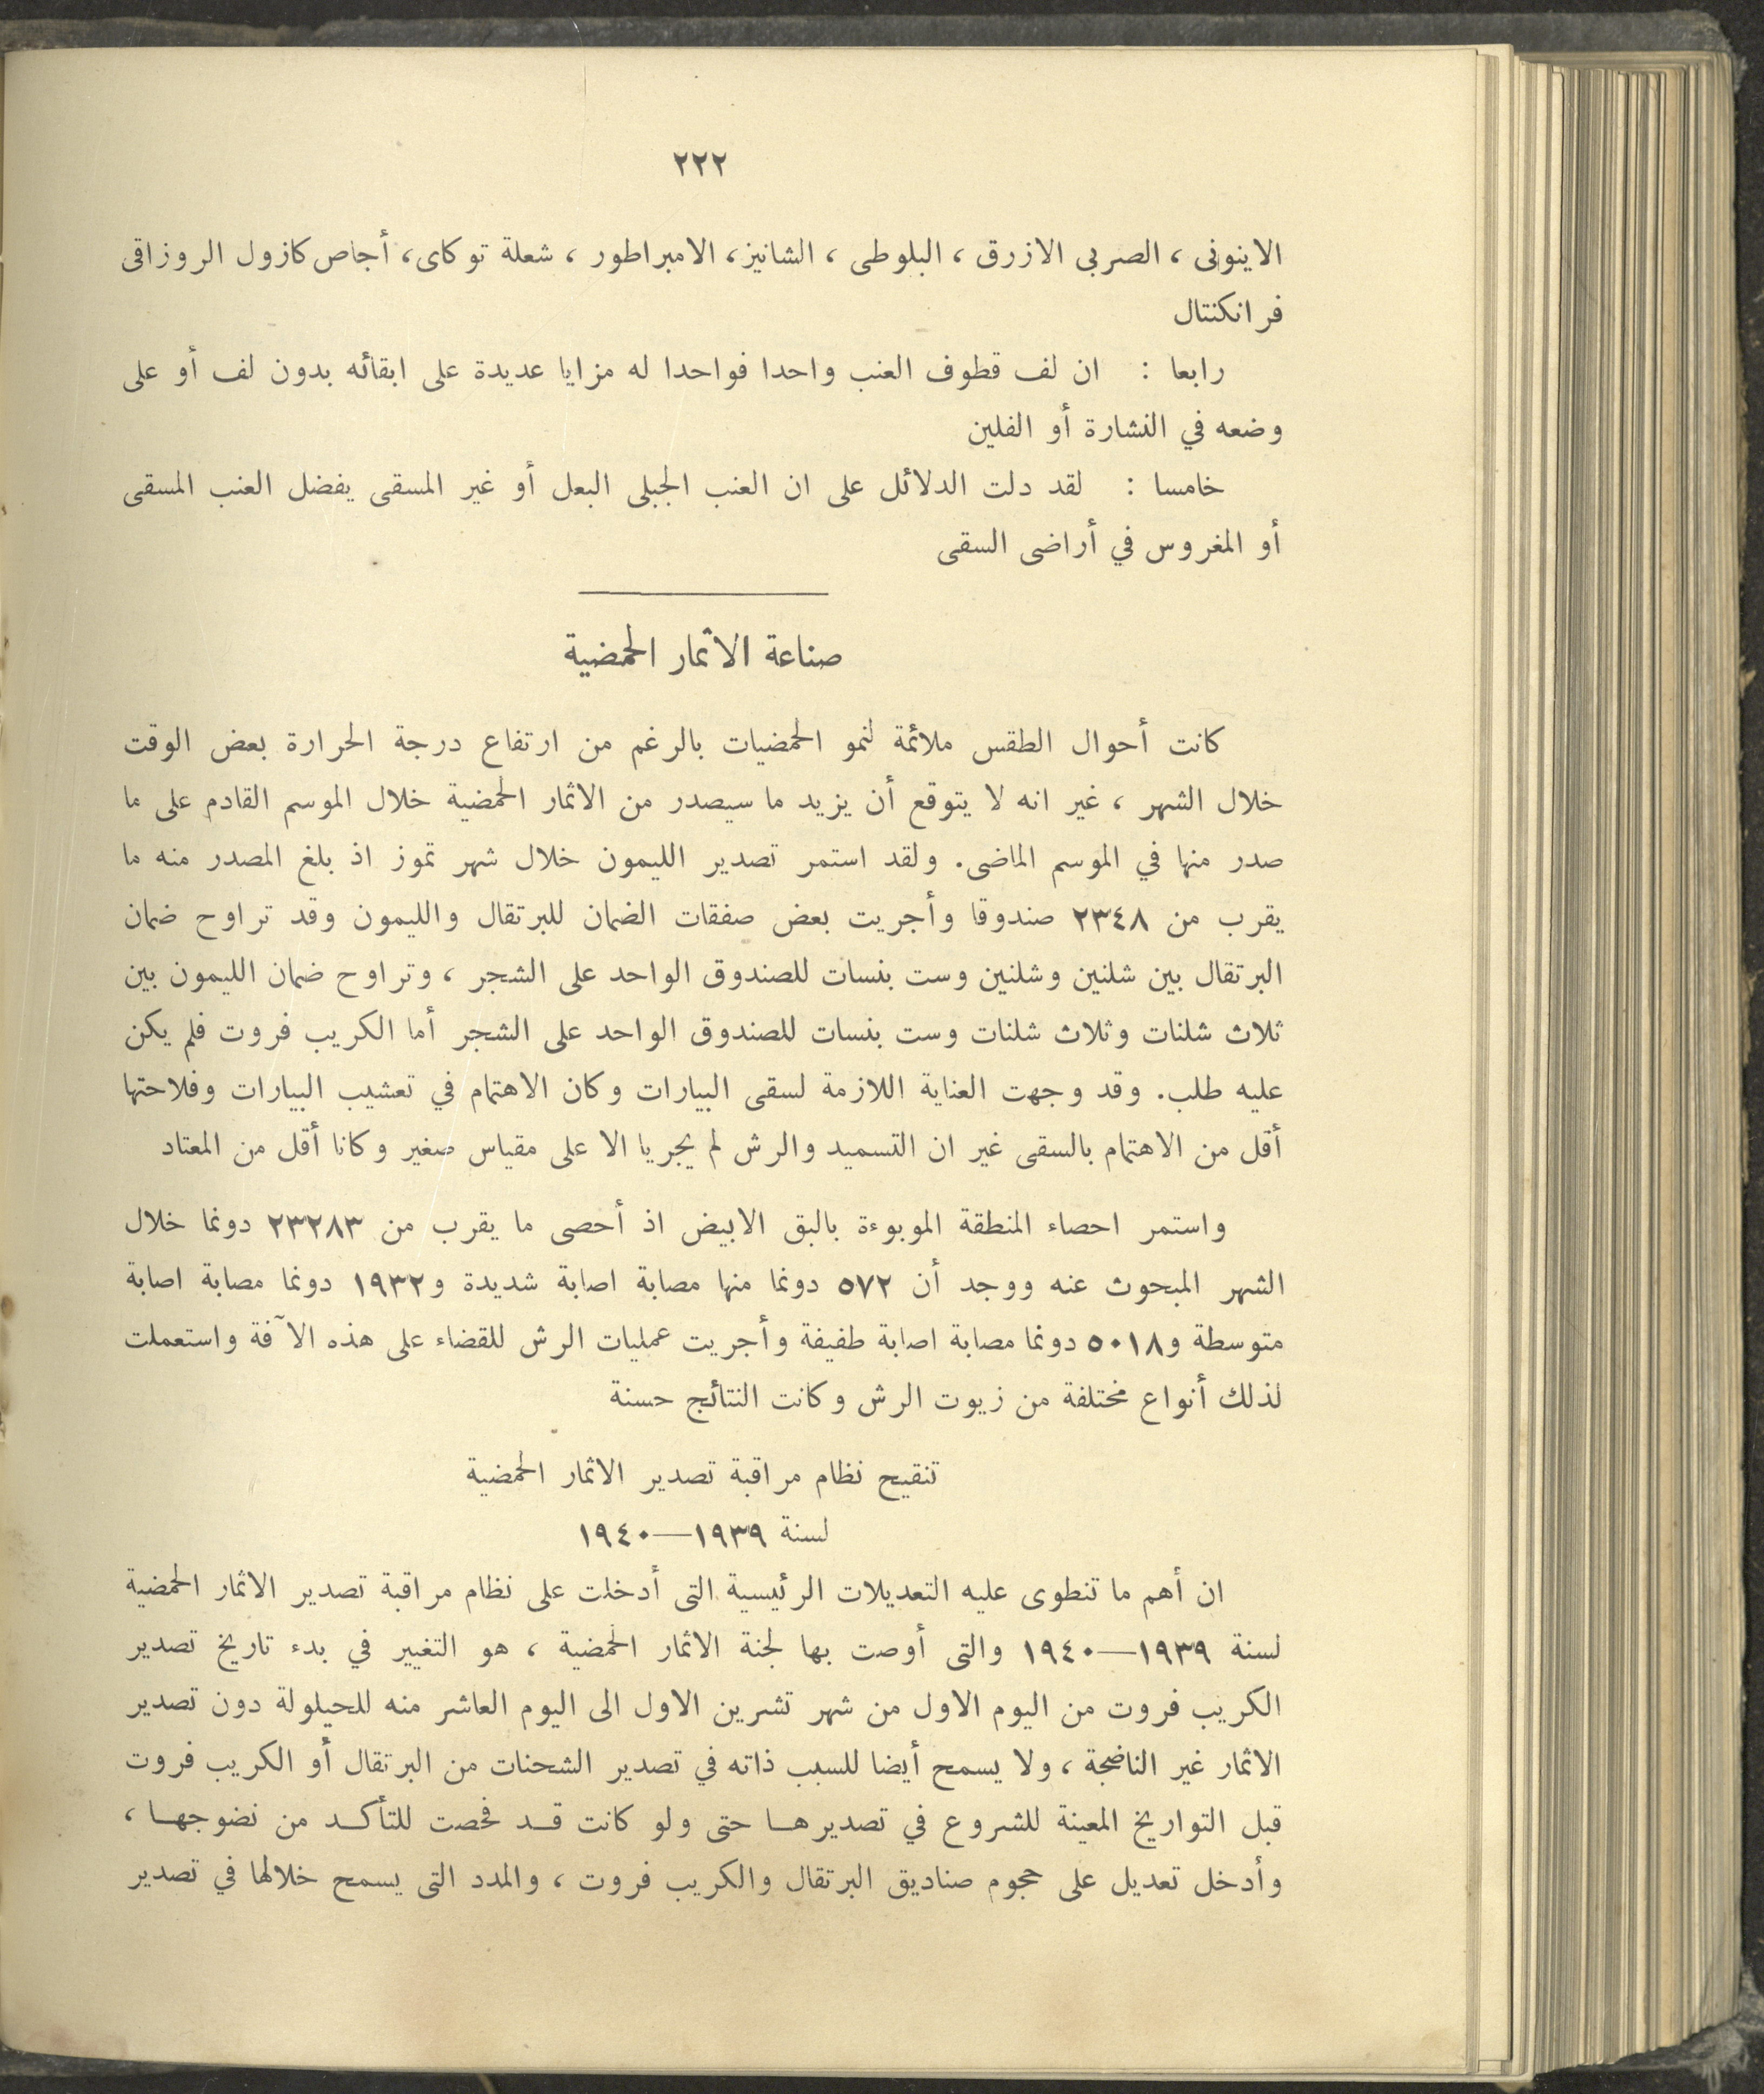 ٢٢٢
الاينوفى ، الصربى الازرق ، البلوطى ، الشانيز، الامبراطور ، شعلة توكاى، أجاص كازول الروزاقى
فرانكنتال
رابعا : ان لف قطوف العنب واحدا فواحدا له مزايا عديدة على ابقائه بدون لف أو على
وضعه في النشارة أو الفلين
خامسا : لقد دلت الدلائل على ان العنب الجبلى البعل أو غير المسقى يفضل العنب المسقى
أو المغروس في أراضى السقى
صناعة الاثمار الحمضية
كانت أحوال الطقس ملائمة لنمو الحمضيات بالرغم من ارتفاع درجة الحرارة بعض الوقت
خلال الشهر ، غير انه لا يتوقع أن يزيد ما سيصدر من الاثمار الحمضية خلال الموسم القادم على ما
صدر منها في الموسم الماضى. ولقد استمر تصدير الليمون خلال شهر تموز اذ بلغ المصدر منه ما
يقرب من ٢٣٤٨ صندوقا وأجريت بعض صفقات الضمان للبرتقال والليمون وقد تراوح ضمان
البرتقال بين شلنين وشلنين وست بنسات للصندوق الواحد على الشجر ، وتراوح ضمان الليمون بين
ثلاث شلنات وثلاث شلنات وست بنسات للصندوق الواحد على الشجر أما الكريب فروت فلم يكن
عليه طلب. وقد وجهت العناية اللازمة لسقى البيارات وكان الاهتمام في تعشيب البيارات وفلاحتها
أقل من الاهتمام بالسقى غير ان التسميد والرش لم يجريا الا على مقياس صغير وكانا أقل من المعتاد
واستمر احصاء المنطقة الموبوءة بالبق الابيض اذ أحصى ما يقرب من ٢٣٢٨٣ دونما خلال
الشهر المبحوث عنه ووجد أن ٥٧٢ دونما منها مصابة اصابة شديدة و١٩٣٢ دونما مصابة اصابة
متوسطة و٥٠١٨ دونما مصابة اصابة طفيفة وأجريت عمليات الرش للقضاء على هذه الآفة واستعملت
لذلك أنواع مختلفة من زيوت الرش وكانت النتائج حسنة
تنقيح نظام مراقبة تصدير الاثمار الحمضية
لسنة ١٩٣٩—١٩٤٠
ان أهم ما تنطوى عليه التعديلات الرئيسية التى أدخلت على نظام مراقبة تصدير الاثمار الحمضية
لسنة ١٩٣٩—١٩٤٠ والتى أوصت بها لجنة الاثمار الحمضية ، هو التغيير في بدء تاريخ تصدير
الكريب فروت من اليوم الاول من شهر تشرين الاول الى اليوم العاشر منه للحيلولة دون تصدير
الاثمار غير الناضجة ، ولا يسمح أيضا للسبب ذاته في تصدير الشحنات من البرتقال أو الكريب فروت
قبل التواريخ المعينة للشروع في تصديرها حتى ولو كانت قد فحصت للتأكد من نضوجها ،
وأدخل تعديل على حجوم صناديق البرتقال والكريب فروت ، والمدد التى يسمح خلالها في تصدير